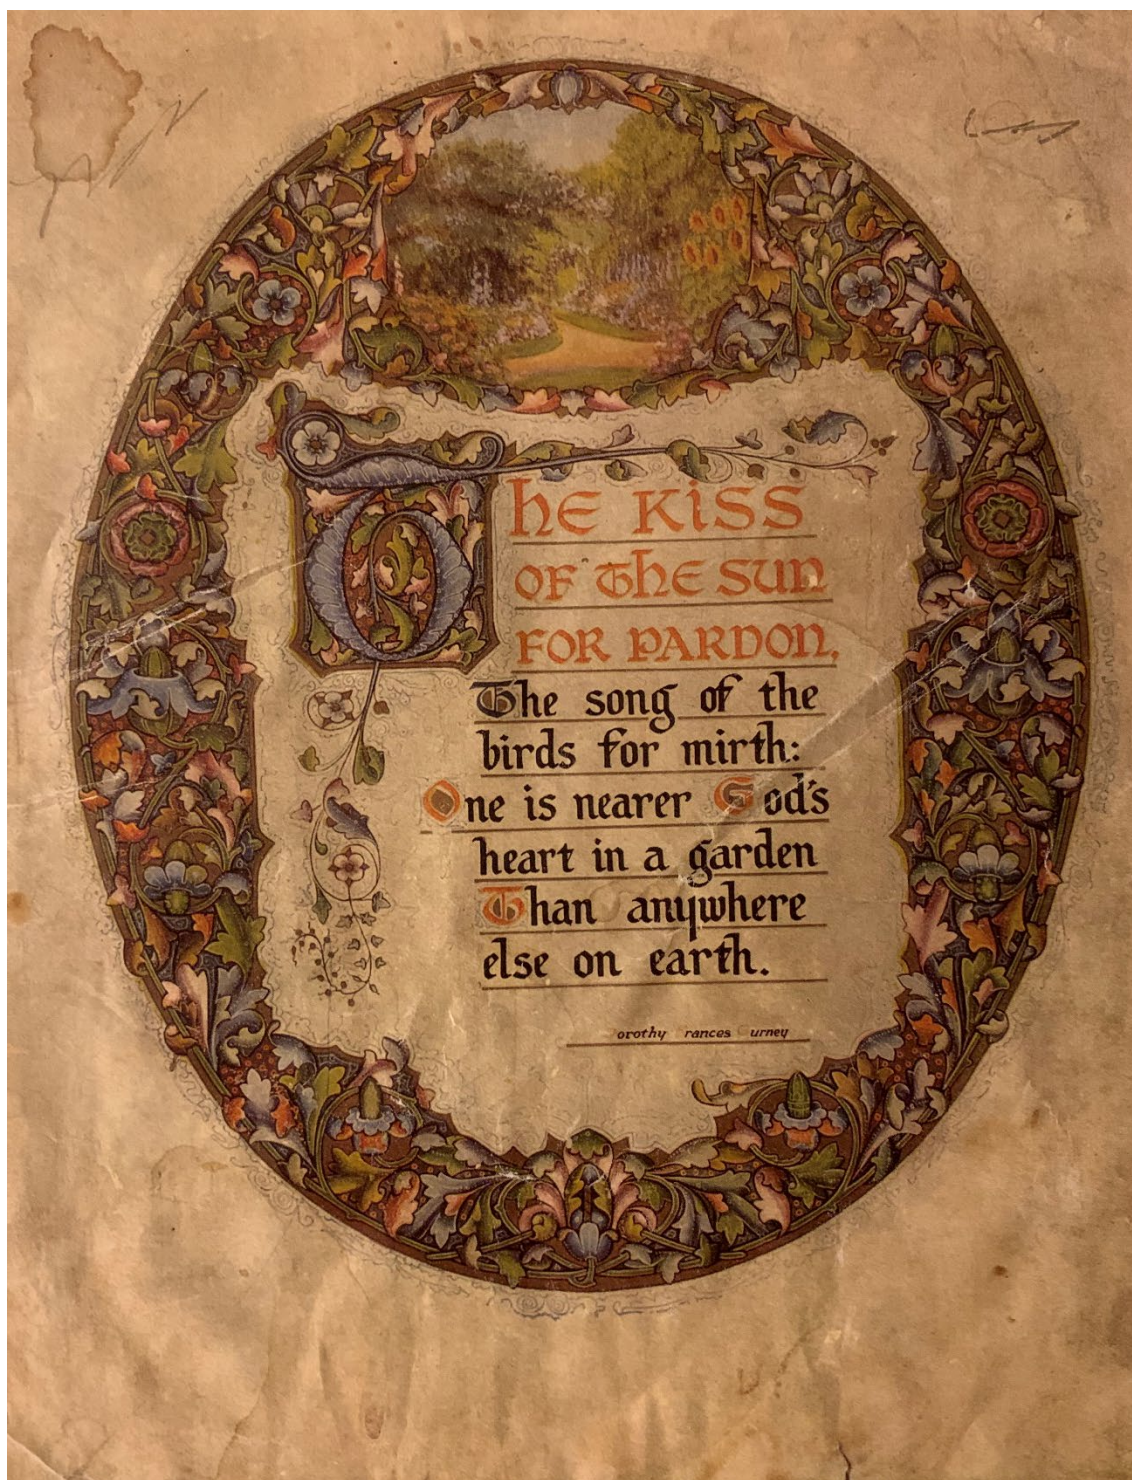 The Kiss
of the Sun
for Pardon,
The song of the
birds for mirth:
One is nearer God's
heart in a garden
Than anywhere
else on earth.
orothy rances urney